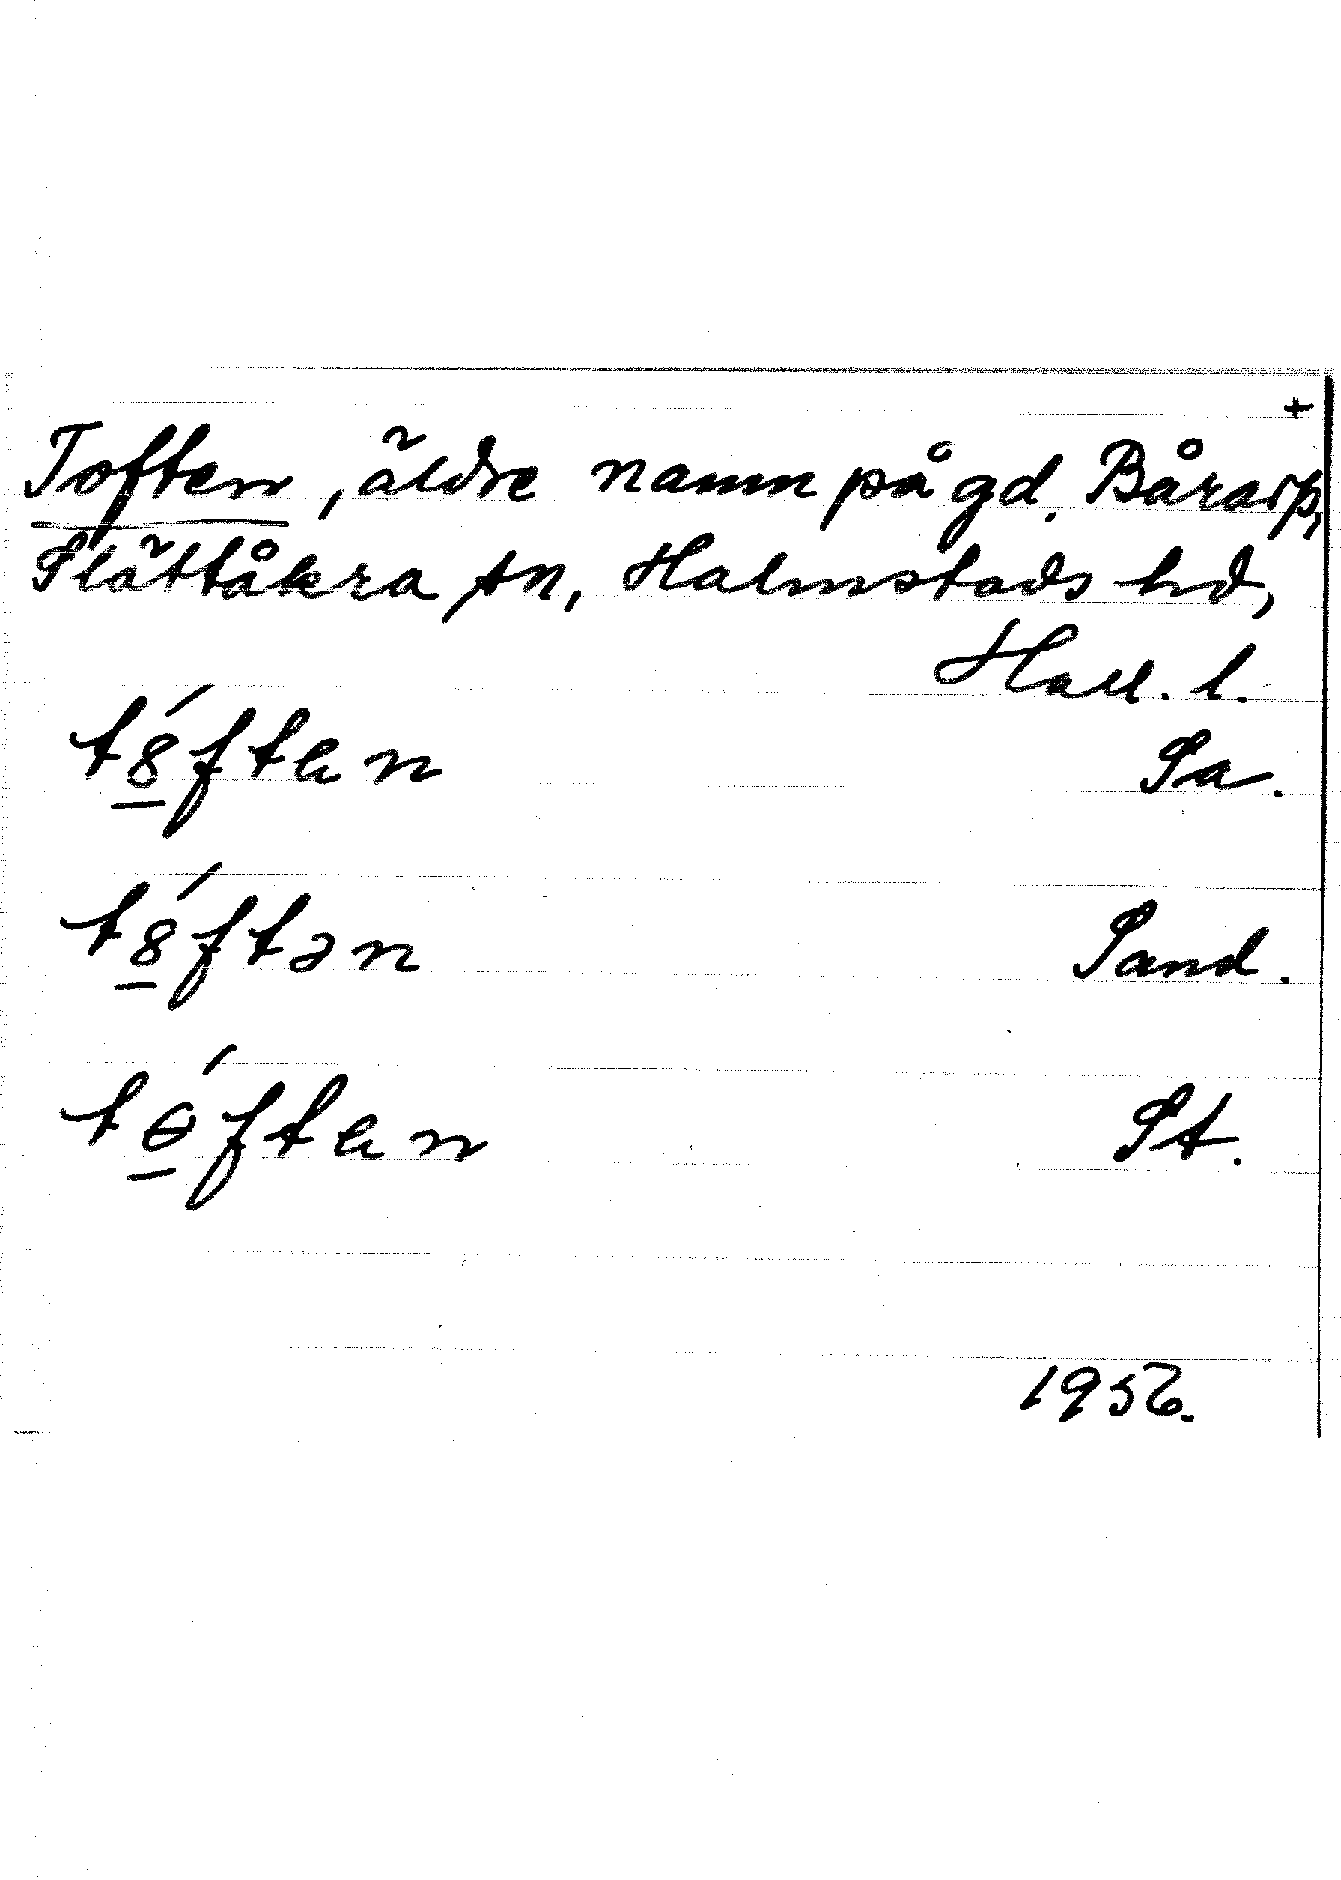 +
Toften, äldre namn på gd. Bårarp,
Slättåkra sn, Halmstads hd,
Hall. l.
t8́ften Sa.
t8́ftən Sand.
tɵ́ften St.
1956.